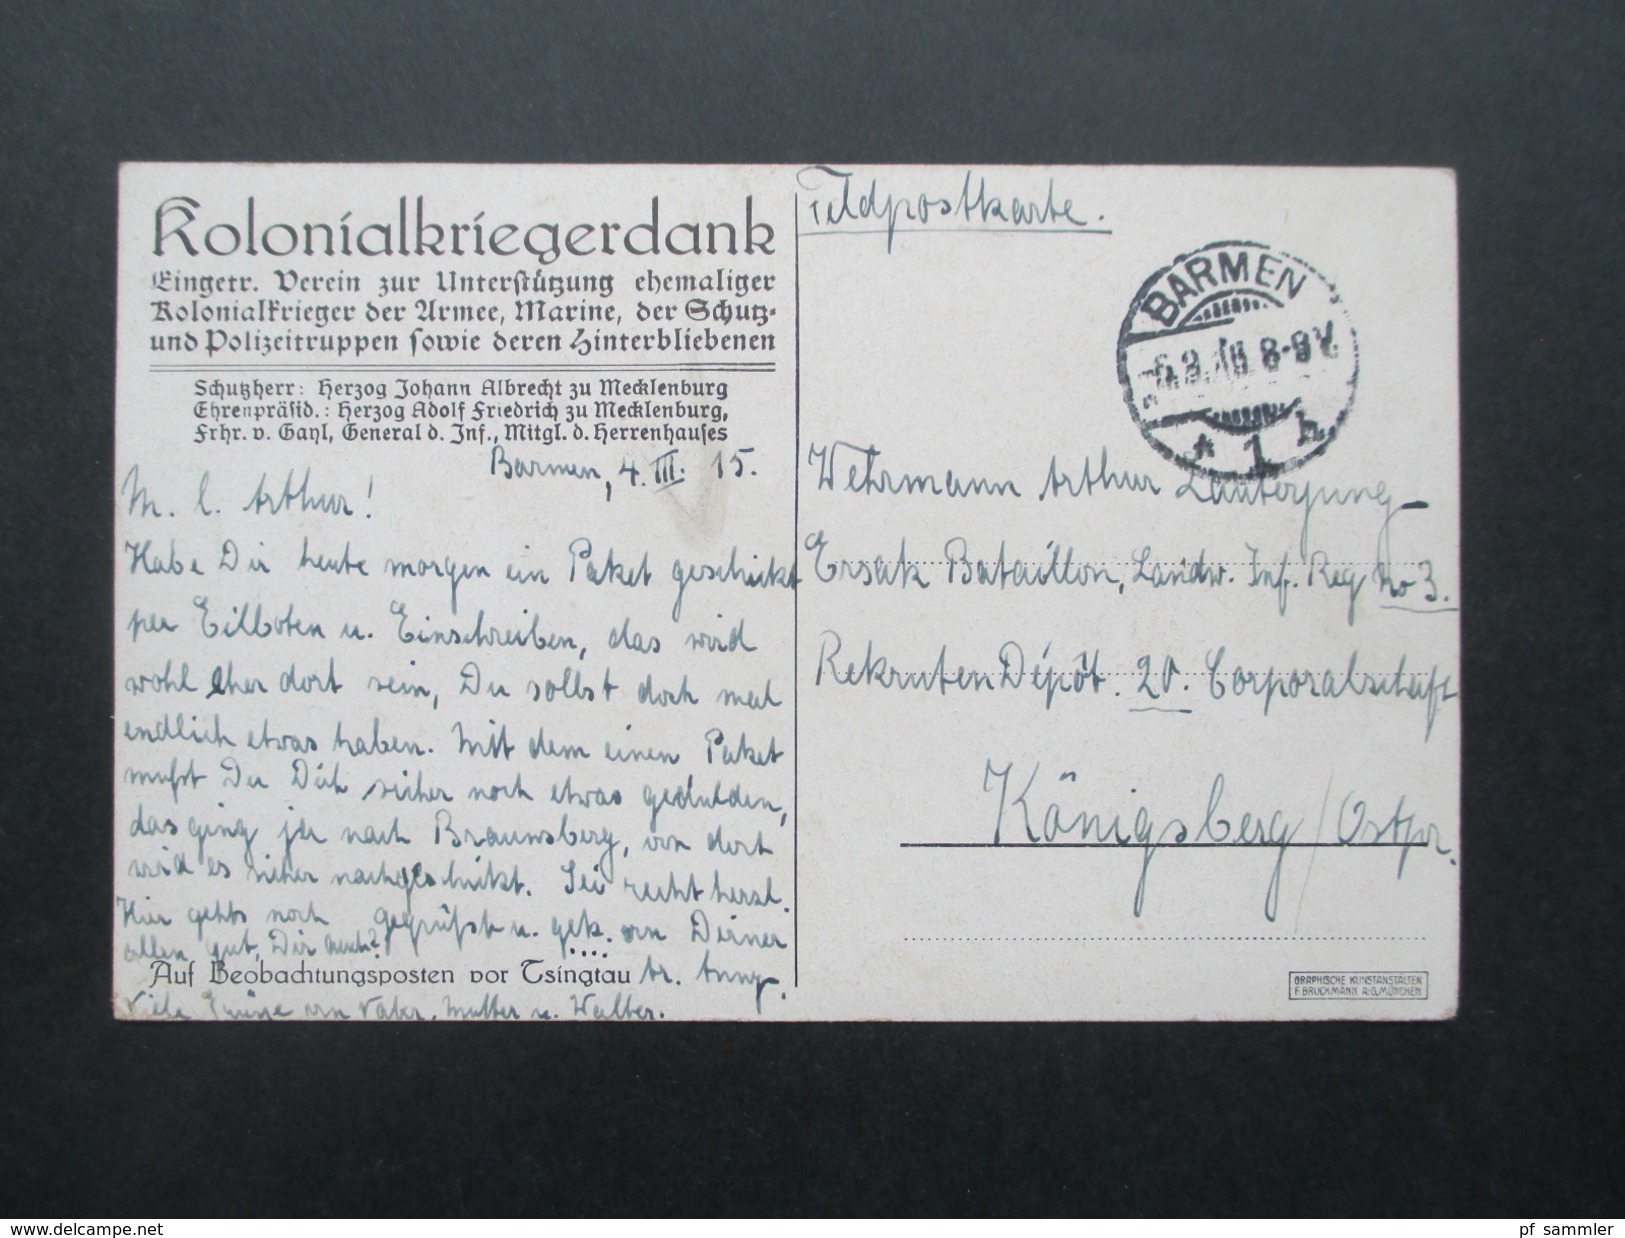 Kolonialkriegerdank
Eingetr. Verein zur Unterstützung ehemaliger
Kolonialkrieger der Armee, Marine, der Schutz-
und Polizeitruppen sowie deren Hinterbliebenen
Schutzherr: Herzog Johann Albrecht zu Mecklenburg
Ehrenpräsid.: Herzog Adolf Friedrich zu Mecklenburg,
Frhr. v. Gayl, General d. Inf., Mitgl. d. Herrenhauses
Barmen, 4. III. 15.
M. l. Arthur!
Habe Dir heute morgen ein Paket geschickt
per Eilboten u. Einschreiben, das wird
wohl eher dort sein, Du sollst doch mal
endlich etwas haben. Mit dem einen Paket
mußt Du Dich sicher noch etwas gedulden,
das ging ja nach Braunsberg, von dort
wird es sicher nachgeschickt. Sei recht herzl.
gegrüßt u. gek. von Deiner
Hier gehts noch
allen gut, Dir auch?
Auf Beobachtungsposten vor Tsingtau
Viele Grüße von Vater, Mutter u. Walter.
Feldpostkarte.
BARMEN
8-9V.
* 1 h
Wehrmann Arthur Lauterjung
Ersatz Bataillon, Landw. Inf. Reg No 3.
Rekruten Dépôt. 20. Corporalschaft
Königsberg / Ostpr.
GRAPHISCHE KUNSTANSTALTEN
F. BRUCKMANN A.G. MÜNCHEN
www.delcampe.net
pf_sammler